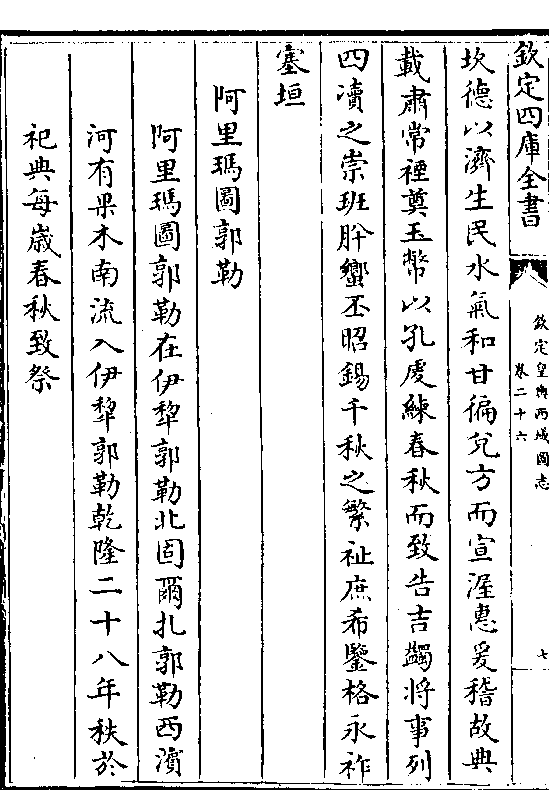 欽定四庫全書
欽定皇輿西域圖志
卷二十六
七
坎德以濟生民水氣和甘徧兌方而宣渥惠爰稽故典
載肅常禋奠玉幣以孔虔練春秋而致告吉蠲將事列
四瀆之崇班肸蠁丕昭錫千秋之繁祉庶希鑒格永祚
塞垣
阿里瑪圖郭勒
阿里瑪圖郭勒在伊犂郭勒北固爾扎郭勒西濱
河有果木南流入伊犂郭勒乾隆二十八年秩於
祀典每嵗春秋致祭